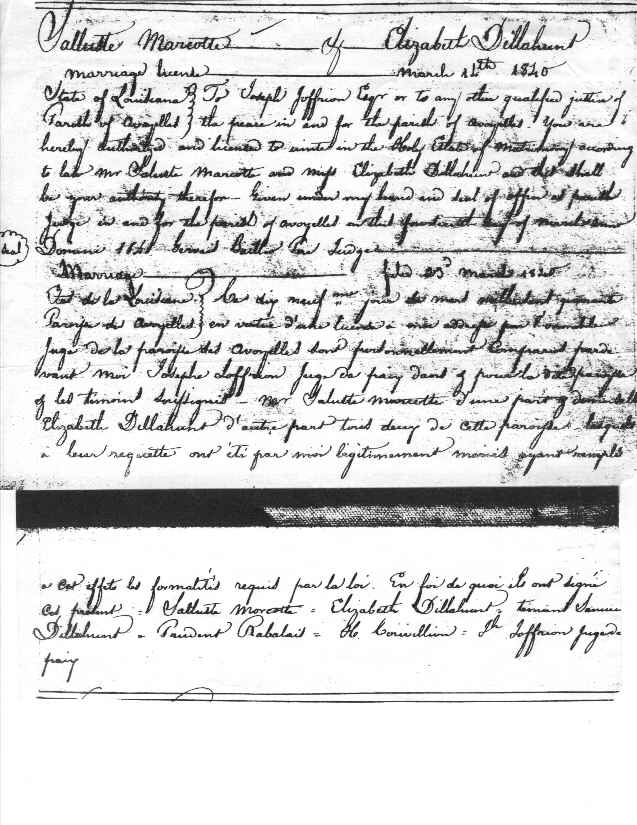 Salluste Marcotte & Elizabeth Dillahunt
marriage license March 14th 1840
State of Louisiana } To Joseph Joffrion Esqr or to any other qualified justice of
Parish of Avoyelles } the peace in and for the parish of Avoyelles. You are
hereby authorized and licensed to unite in the Holy Estate of Matrimony according
to law Mr Saluste Marcotte and miss Elizabeth Dillahunt and this shall
be your authority therefor. Given under my hand and seal of office as parish
Judge in and for the parish of avoyelles on this fourteenth day of march
seal
Domini 1840 Par Judge
Marriage filed 23d March 1840
Etat de la Louisiane } Ce dix neuf me jour de mars mil huit cent quarante
Paroisse des Avoyelles } en vertue d'une license à moi adressé par l'honorable
Juge de la paroisse des Avoyelles sont personnellement comparent parde
vant moi Josephe Joffrion Juge de paix dans & pour la paroisse
& les temoins soussignés - Mr Saluste Marcotte d'une part & demoiselle
Elizabeth Dillahunt d'autre part tous deux de cette paroisse lesquels
à leur requette ont été par moi légitimement mariés ayant remplis
a cet effets les formalités requis par la loi. En foi de quoi ils ont signé
ces présent = Salluste Morcotte = Elizabeth Dillahunt = temoins
Dillahunt = Paulent Rabalais = H Couvillion = Jh Joffrion Juge de
paix